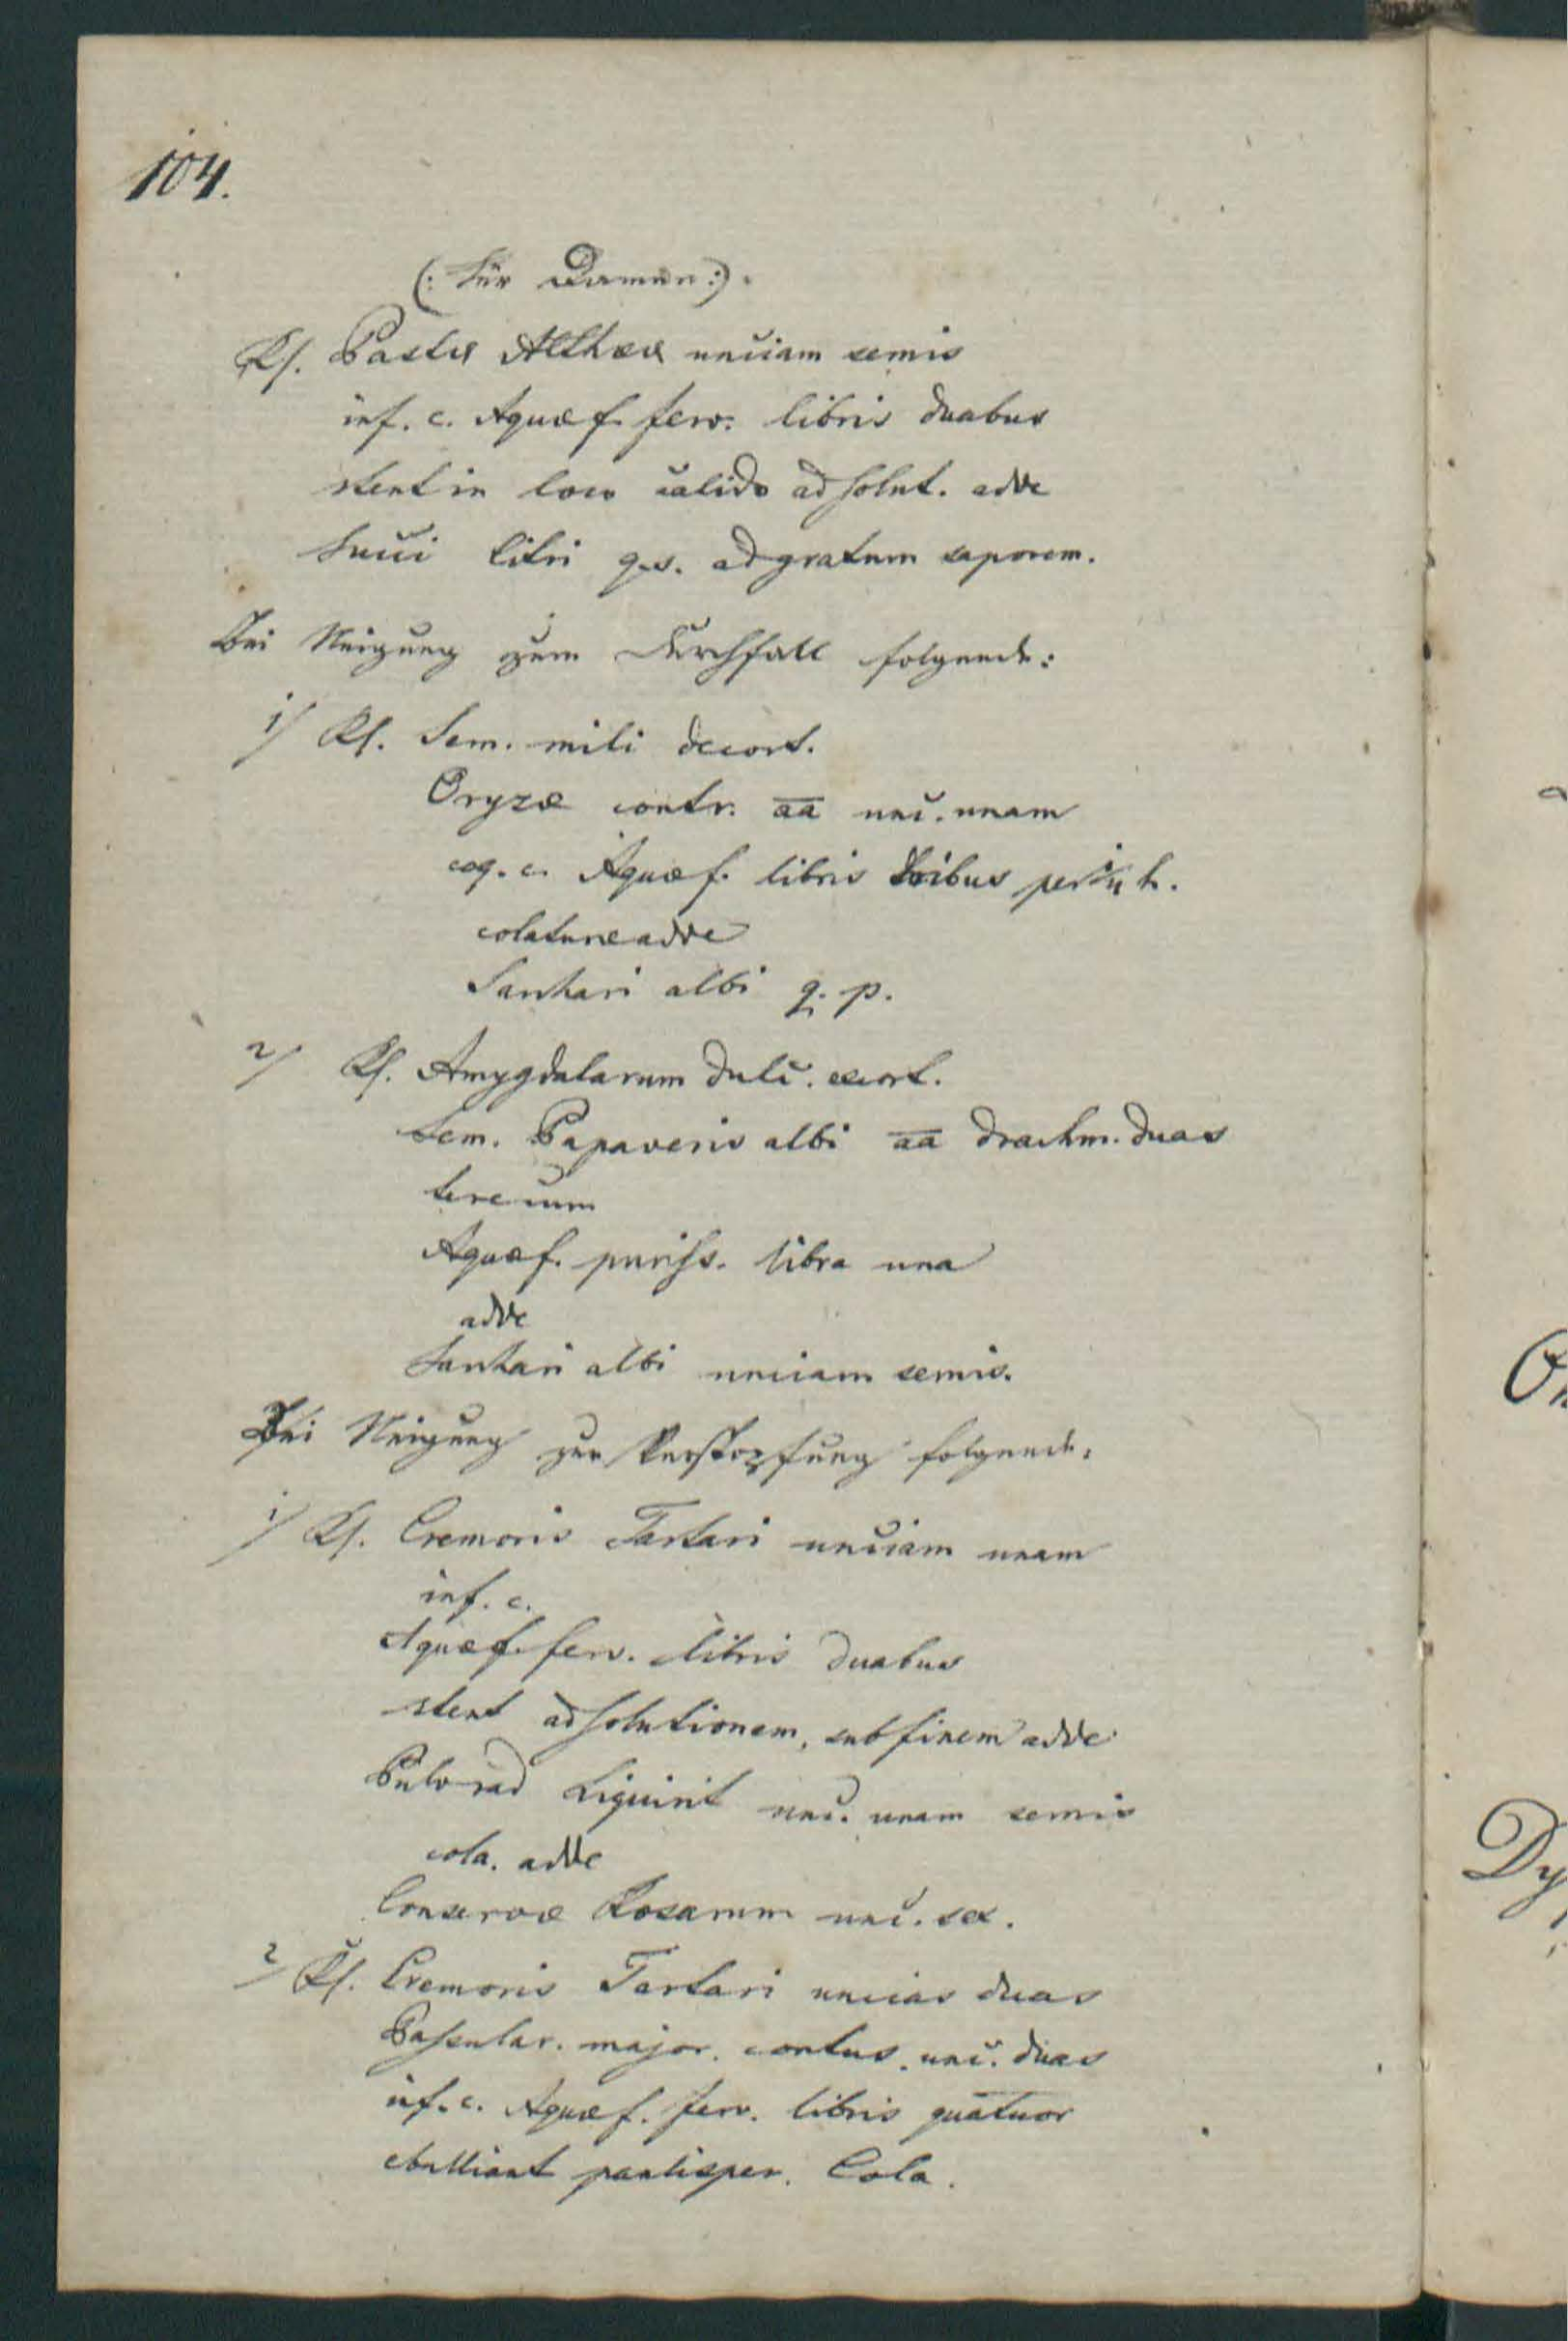 104.
(: Für Damen :).
Rf. Pastæ Altheæ unciam semis
inf. c. Aquæ f. ferv. libris duabus
stent in loco calido ad solut. adde
Succi Citri q. s. ad gratum saporem.
Bei Neigung zum Durchfall folgende:
1/ Rf. Sem. mili decort.
Oryzæ contr. aa unc. unam
coq. c. Aquæ f. libris tribus per ¼ h.
colaturæ adde
Sachari albi q. p.
2/ Rf. Amygdalarum dulc. excort.
Sem. Papaveris albi aa drachm. duas
tere cum
Aquæ f. puriss. libra una
adde
Sachari albi unciam semis.
Bei Neigung zur Verstopfung folgende:
1/ Rf. Cremoris Tartari unciam unam
inf. c.
Aquæ f. ferv. libris duabus
stent ad solutionem, sub finem adde
Pulv rad Liquirit unc. unam semis
cola. adde
Conservæ Rosarum unc. sex.
2/ Rf. Cremoris Tartari uncias duas
Passular. major. contus. unc. duas
inf. c. Aquæ f. ferv. libris quatuor
ebulliant paulisper. Cola.
Dy